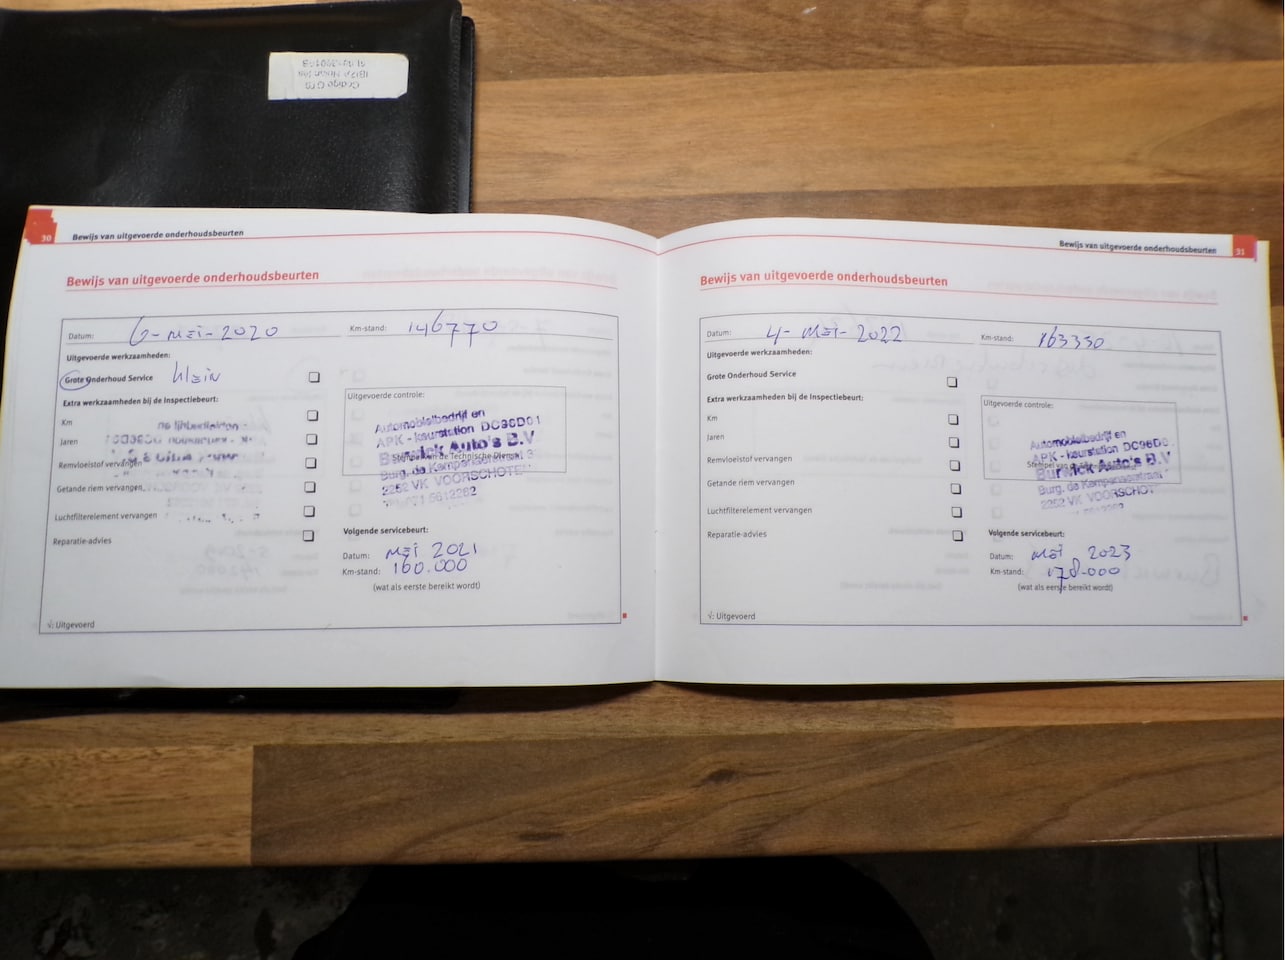 30 Bewijs van uitgevoerde onderhoudsbeurten
Bewijs van uitgevoerde onderhoudsbeurten
Datum: 6-MEI-2020 Km-stand: 146770
Uitgevoerde werkzaamheden:
Grote Onderhoud Service klein
Extra werkzaamheden bij de Inspectiebeurt:
Km
Jaren
Remvloeistof vervangen
Getande riem vervangen
Luchtfilterelement vervangen
Reparatie-advies
Uitgevoerde controle:
Automobielbedrijf en
APK - keurstation DC96D01
Burwick Auto's B.V
Stempel van de Technische Dienst
Burg. de Kempenaerstraat
2252 VK VOORSCHOTEN
071 5612262
Volgende servicebeurt:
Datum: MEI 2021
Km-stand: 160.000
(wat als eerste bereikt wordt)
√: Uitgevoerd
Bewijs van uitgevoerde onderhoudsbeurten 31
Bewijs van uitgevoerde onderhoudsbeurten
Datum: 4-MEI-2022 Km-stand: 163330
Uitgevoerde werkzaamheden:
Grote Onderhoud Service
Extra werkzaamheden bij de Inspectiebeurt:
Km
Jaren
Remvloeistof vervangen
Getande riem vervangen
Luchtfilterelement vervangen
Reparatie-advies
Uitgevoerde controle:
Automobielbedrijf en
APK - keurstation DC96D0
Burwick Auto's B.V
Stempel van de
Burg. de Kempenaerstraat
2252 VK VOORSCHOT
Volgende servicebeurt:
Datum: MEI 2023
Km-stand: 178.000
(wat als eerste bereikt wordt)
√: Uitgevoerd